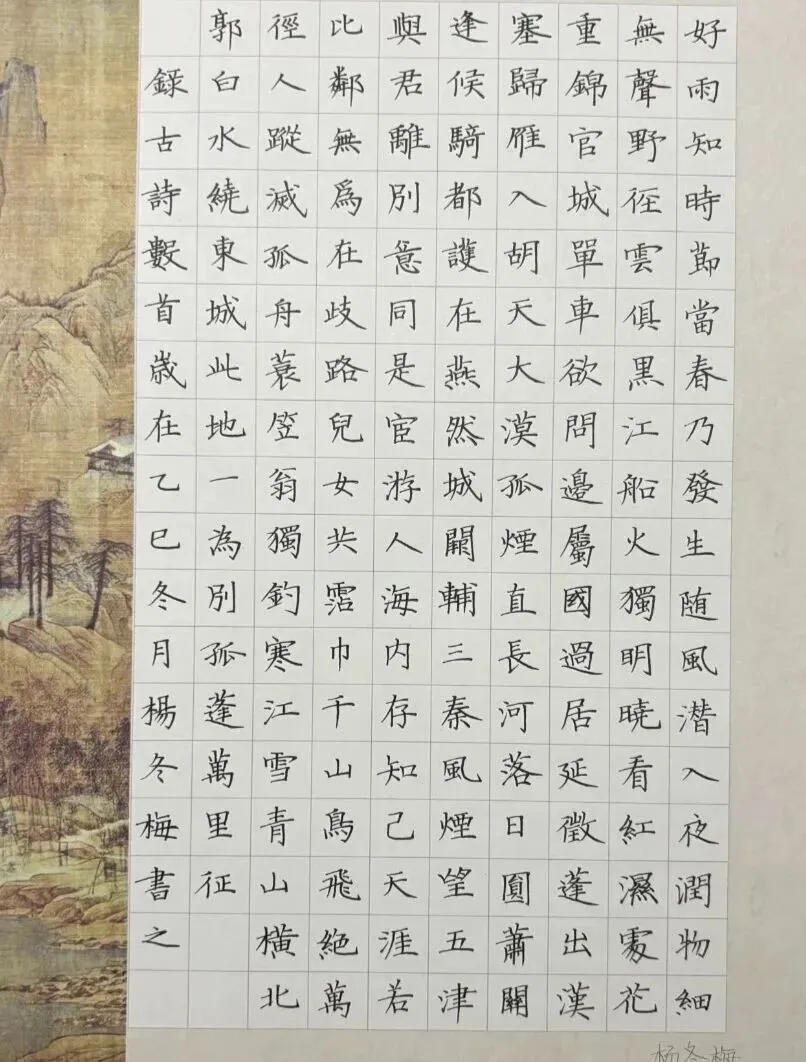 好雨知時節當春乃發生随風潛入夜潤物細
無聲野徑雲俱黑江船火獨明曉看紅濕處花
重錦官城單車欲問邊屬國過居延徵蓬出漢
塞歸雁入胡天大漠孤煙直長河落日圓蕭關
逢候騎都護在燕然城闕輔三秦風煙望五津
與君離別意同是宦游人海内存知己天涯若
比鄰無爲在歧路兒女共霑巾千山鳥飛絕萬
徑人蹤滅孤舟蓑笠翁獨釣寒江雪青山橫北
郭白水繞東城此地一為別孤蓬萬里征
錄古詩數首歲在乙巳冬月楊冬梅書之
杨冬梅